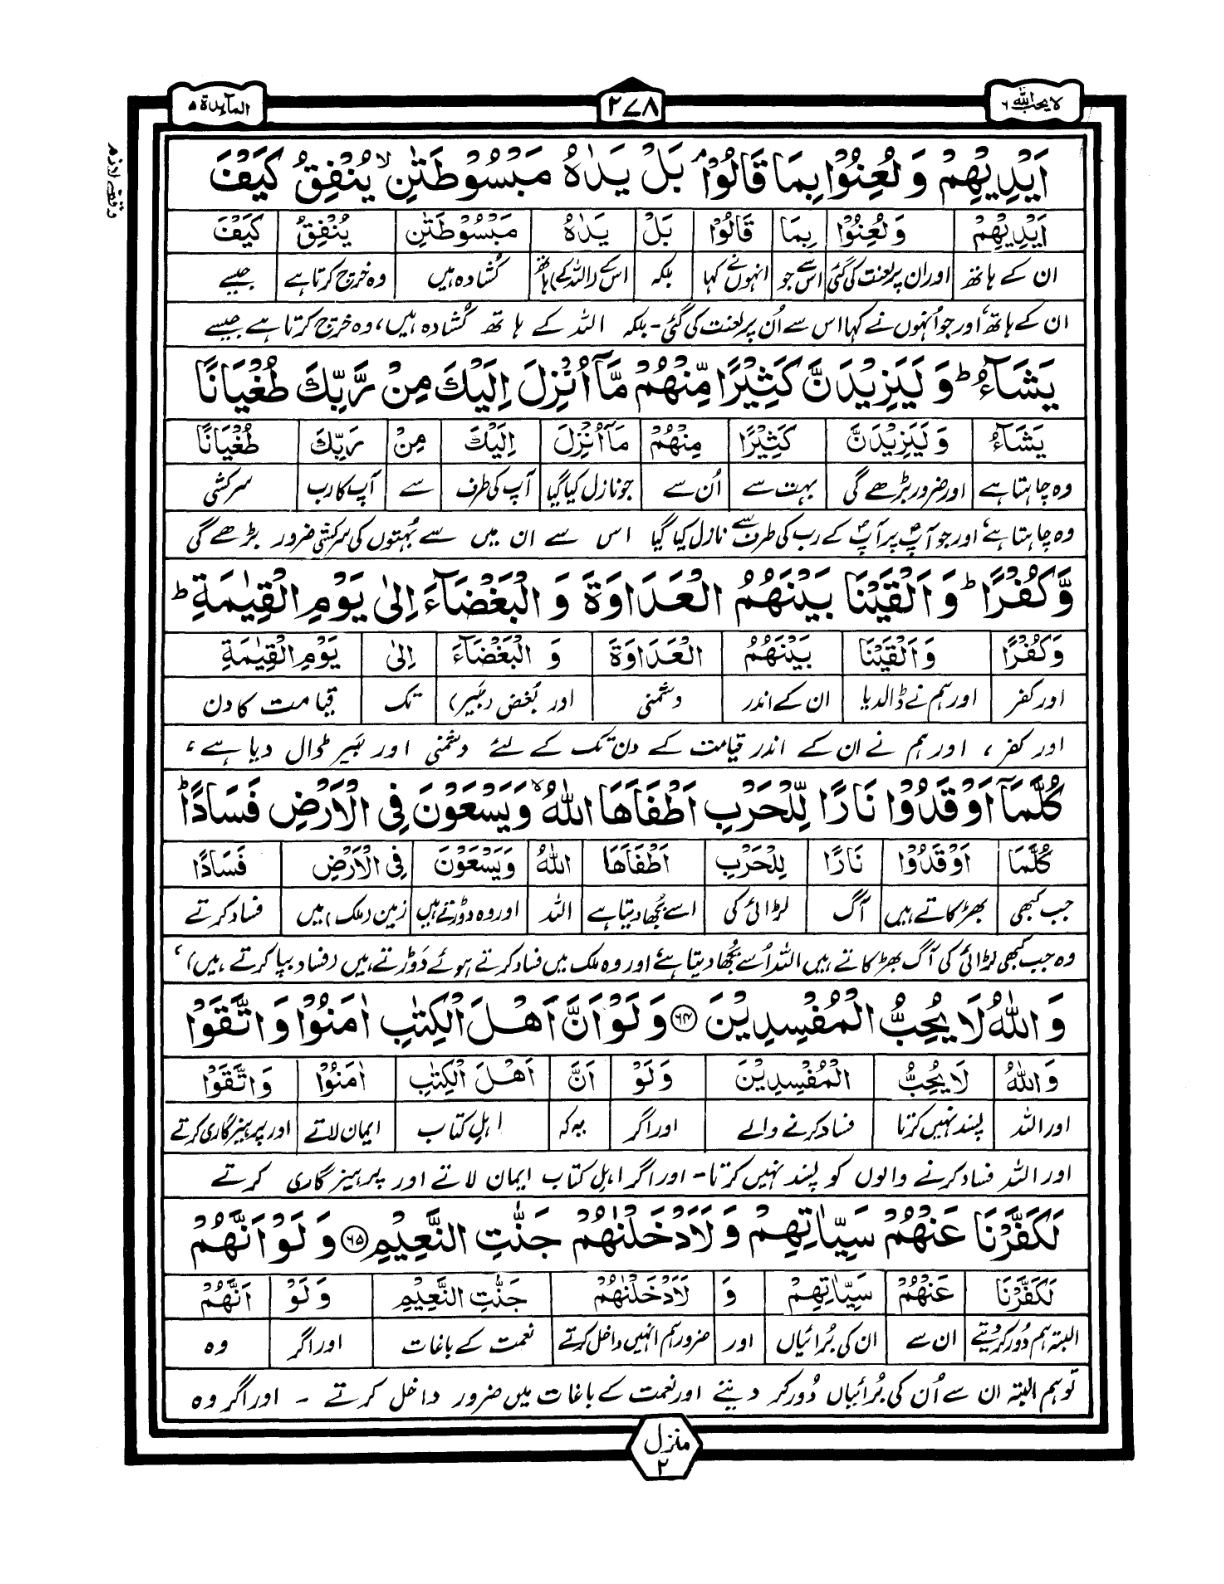 لا يحب الله ٦
٢٧٨
المآئدة ٥
وقف لازم
اَيْدِيْهِمْ وَلُعِنُوْا بِمَا قَالُوْا ۘ بَلْ يَدٰهُ مَبْسُوْطَتٰنِ ۙ يُنْفِقُ كَيْفَ
اَيْدِيْهِمْ وَلُعِنُوْا بِمَا قَالُوْا بَلْ يَدٰهُ مَبْسُوْطَتٰنِ يُنْفِقُ كَيْفَ
ان کے ہاتھ اور ان پر لعنت کی گئی اس سے جو انہوں نے کہا بلکہ اس کے (اللہ کے) ہاتھ کشادہ ہیں وہ خرچ کرتا ہے جیسے
ان کے ہاتھ، اور جو اُنہوں نے کہا اس سے اُن پر لعنت کی گئی۔ بلکہ اللہ کے ہاتھ کُشادہ ہیں، وہ خرچ کرتا ہے جیسے
يَشَآءُ ؕ وَلَيَزِيْدَنَّ كَثِيْرًا مِّنْهُمْ مَّآ اُنْزِلَ اِلَيْكَ مِنْ رَّبِّكَ طُغْيَانًا
يَشَآءُ وَلَيَزِيْدَنَّ كَثِيْرًا مِنْهُمْ مَآ اُنْزِلَ اِلَيْكَ مِنْ رَبِّكَ طُغْيَانًا
وہ چاہتا ہے اور ضرور بڑھے گی بہت سے اُن سے جو نازل کیا گیا آپ کی طرف سے آپ کا رب سرکشی
وہ چاہتا ہے، اور جو آپؐ پر آپؐ کے رب کی طرف سے نازل کیا گیا اس سے ان میں سے بُہتوں کی سرکشی ضرور بڑھے گی
وَّكُفْرًا ؕ وَاَلْقَيْنَا بَيْنَهُمُ الْعَدَاوَةَ وَ الْبَغْضَآءَ اِلٰى يَوْمِ الْقِيٰمَةِ ؕ
وَكُفْرًا وَاَلْقَيْنَا بَيْنَهُمُ الْعَدَاوَةَ وَ الْبَغْضَآءَ اِلٰى يَوْمِ الْقِيٰمَةِ
اور کفر اور ہم نے ڈالدیا ان کے اندر دشمنی اور بُغض (بَیر) تک قیامت کا دن
اور کفر، اور ہم نے ان کے اندر قیامت کے دن تک کے لئے دشمنی اور بَیر ڈال دیا ہے،
كُلَّمَآ اَوْقَدُوْا نَارًا لِّلْحَرْبِ اَطْفَاَهَا اللّٰهُ ۙ وَيَسْعَوْنَ فِى الْاَرْضِ فَسَادًا ؕ
كُلَّمَا اَوْقَدُوْا نَارًا لِلْحَرْبِ اَطْفَاَهَا اللّٰهُ وَيَسْعَوْنَ فِى الْاَرْضِ فَسَادًا
جب کبھی بھڑکاتے ہیں آگ لڑائی کی اسے بُجھا دیتا ہے اللہ اور وہ دوڑتے ہیں زمین (ملک) میں فساد کرتے
وہ جب کبھی لڑائی کی آگ بھڑکاتے ہیں اللہ اُسے بُجھا دیتا ہے، اور وہ ملک میں فساد کرتے ہوئے دَوڑتے ہیں (فساد بپا کرتے ہیں)،
وَاللّٰهُ لَا يُحِبُّ الْمُفْسِدِيْنَ ۝٦٤ وَلَوْ اَنَّ اَهْلَ الْكِتٰبِ اٰمَنُوْا وَاتَّقَوْا
وَاللّٰهُ لَا يُحِبُّ الْمُفْسِدِيْنَ وَلَوْ اَنَّ اَهْلَ الْكِتٰبِ اٰمَنُوْا وَاتَّقَوْا
اور اللہ پسند نہیں کرتا فساد کرنے والے اور اگر یہ کہ اہلِ کتاب ایمان لاتے اور پرہیزگاری کرتے
اور اللہ فساد کرنے والوں کو پسند نہیں کرتا۔ اور اگر اہلِ کتاب ایمان لاتے اور پرہیزگاری کرتے
لَكَفَّرْنَا عَنْهُمْ سَيِّاٰتِهِمْ وَلَاَدْخَلْنٰهُمْ جَنّٰتِ النَّعِيْمِ ۝٦٥ وَلَوْ اَنَّهُمْ
لَكَفَّرْنَا عَنْهُمْ سَيِّاٰتِهِمْ وَ لَاَدْخَلْنٰهُمْ جَنّٰتِ النَّعِيْمِ وَلَوْ اَنَّهُمْ
البتہ ہم دُور کر دیتے ان سے ان کی بُرائیاں اور ضرور ہم انہیں داخل کرتے نعمت کے باغات اور اگر وہ
تو ہم البتہ ان سے اُن کی بُرائیاں دُور کر دیتے اور نعمت کے باغات میں ضرور داخل کرتے ۔ اور اگر وہ
منزل
٢